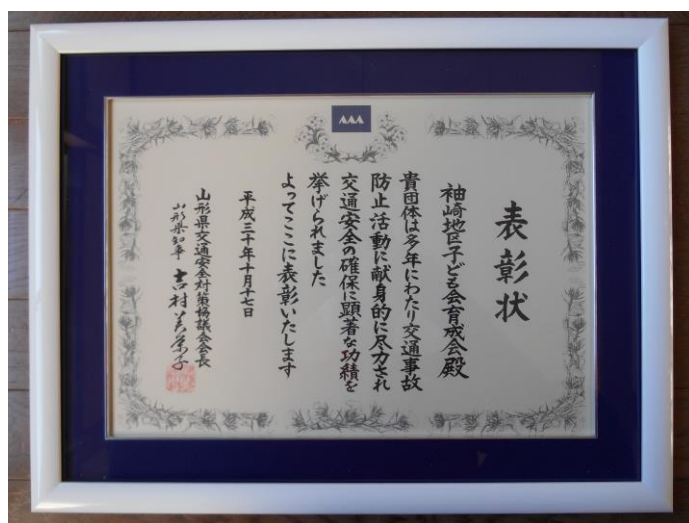 表彰状
袖崎地区子ども会育成会殿
貴団体は多年にわたり交通事故
防止活動に献身的に尽力され
交通安全の確保に顕著な功績を
挙げられました
よってここに表彰いたします
平成三十年十月十七日
山形県交通安全対策協議会会長
山形県知事 吉村美栄子